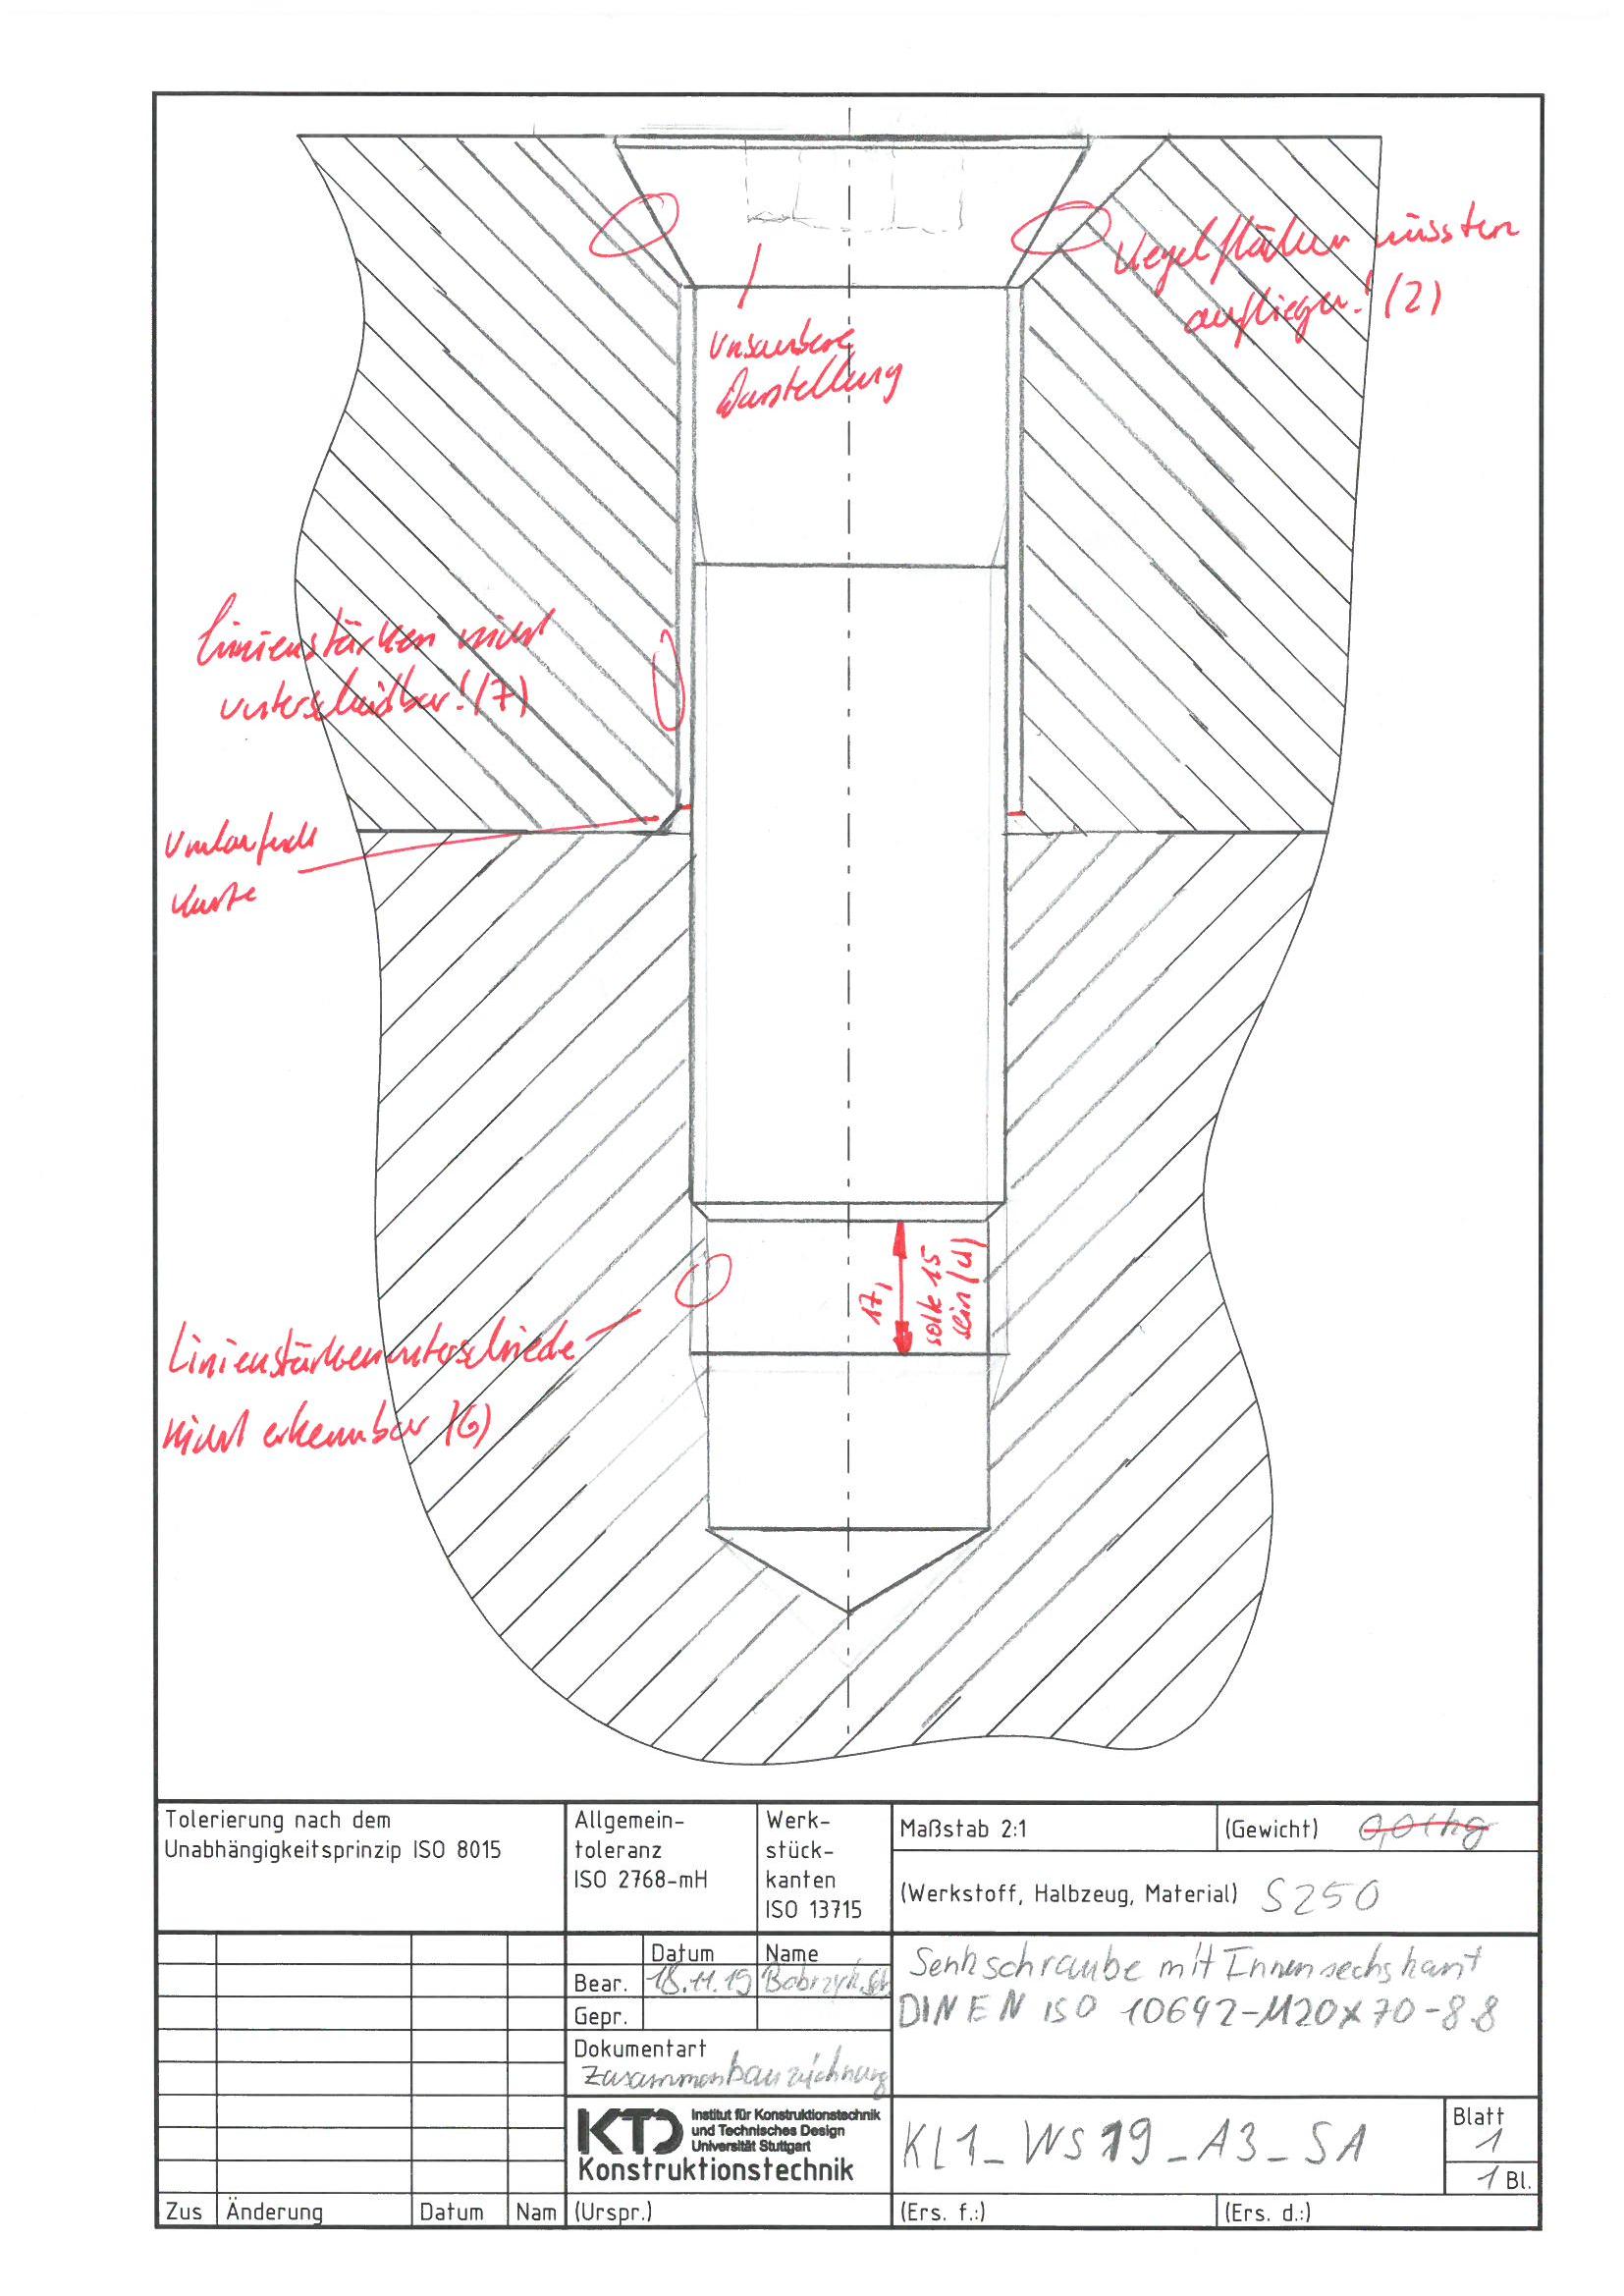 Kegelflächen müssten
aufliegen! (2)
unsaubere
Darstellung
Linienstärken nicht
unterscheidbar! (7)
Umlaufende
Kante
17,
sollte 15
sein (4)
Linienstärkenunterschiede
nicht erkennbar (6)
Tolerierung nach dem
Unabhängigkeitsprinzip ISO 8015
Allgemein-
toleranz
ISO 2768-mH
Werk-
stück-
kanten
ISO 13715
Maßstab 2:1
(Gewicht)
(Werkstoff, Halbzeug, Material) S250
Datum Name
Bear. 18.11.19
Gepr.
Dokumentart
Zusammenbauzeichnung
Senkschraube mit Innensechskant
DIN EN ISO 10642-M20x70-8.8
KTD Institut für Konstruktionstechnik
und Technisches Design
Universität Stuttgart
Konstruktionstechnik
KL1_WS19_A3_SA
Blatt
1
1 Bl.
Zus Änderung Datum Nam (Urspr.) (Ers. f.:) (Ers. d.:)